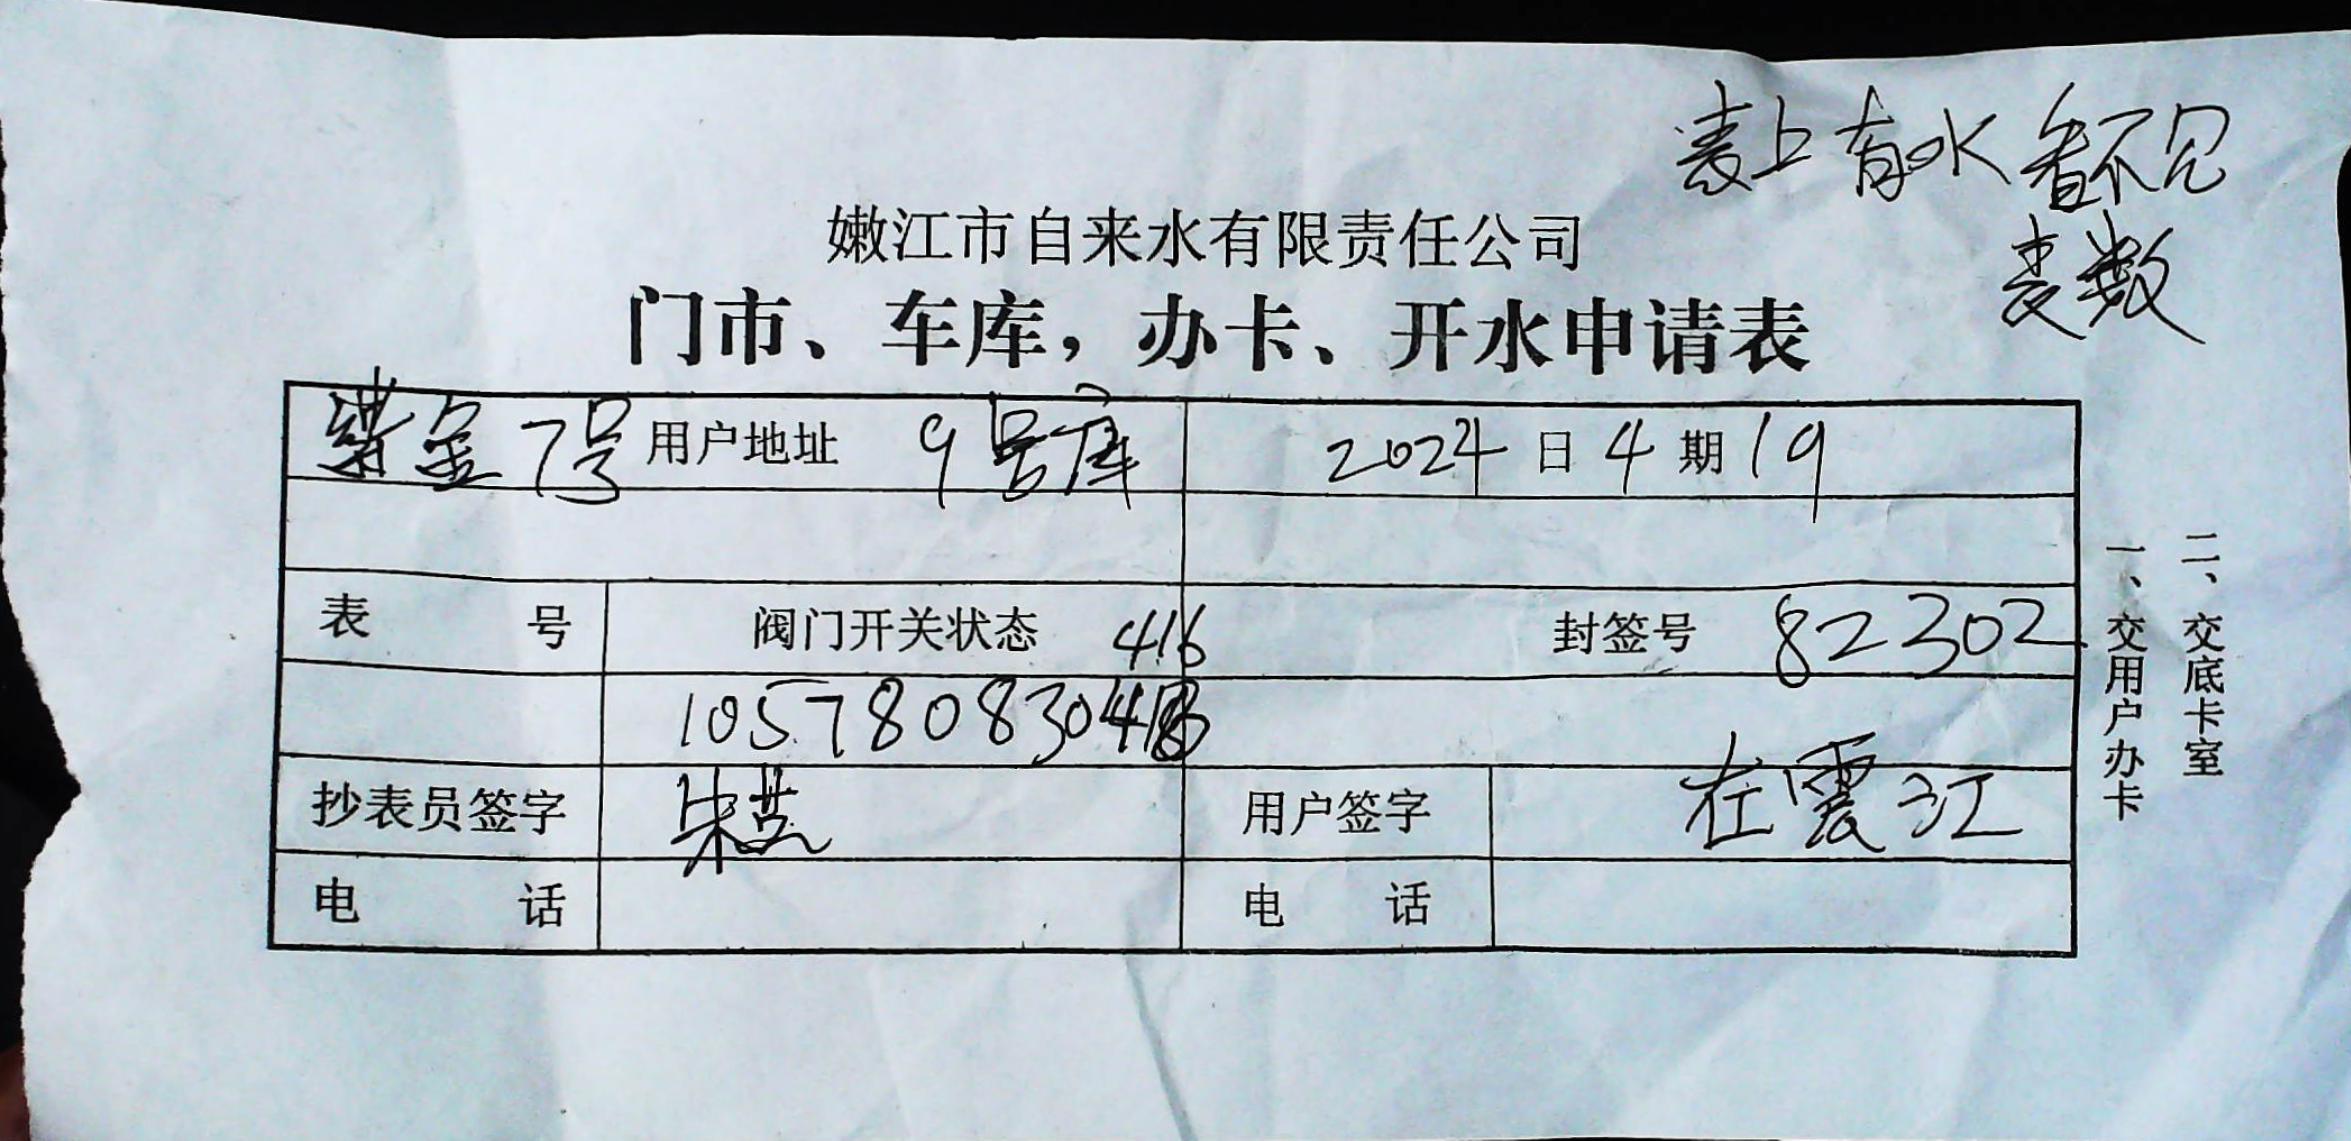 表上有水看不见
表数
嫩江市自来水有限责任公司
门市、车库，办卡、开水申请表
紫金7号 用户地址 9号库 2024 日 4 期 19
表 号 阀门开关状态 416 封签号 82302
105780830
抄表员签字 朱 用户签字 震江
电 话 电 话
一、交用户办卡
二、交底卡室